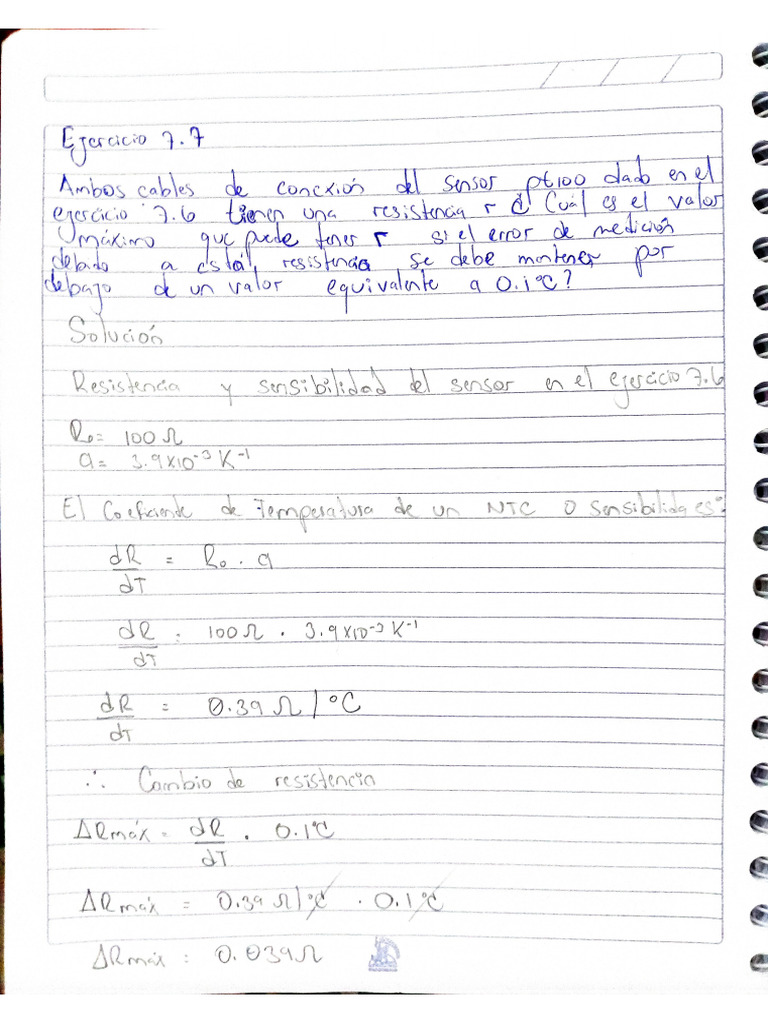 Ejercicio 7.7
Ambos cables de conexión del sensor pt100 dado en el
ejercicio 7.6 tienen una resistencia r ¿Cuál es el valor
máximo que puede tener r si el error de medición
debido a está resistencia se debe mantener por
debajo de un valor equivalente a 0.1°C?
Solución
Resistencia y sensibilidad del sensor en el ejercicio 7.6
R₀= 100 Ω
a= 3.9x10⁻³ K⁻¹
El Coeficiente de Temperatura de un NTC o sensibilida es:
dR/dT = R₀ . a
dR/dT = 100 Ω . 3.9x10⁻³ K⁻¹
dR/dT = 0.39 Ω/°C
∴ Cambio de resistencia
ΔRmáx = dR/dT . 0.1°C
ΔRmáx = 0.39 Ω/°C . 0.1°C
ΔRmáx = 0.039Ω